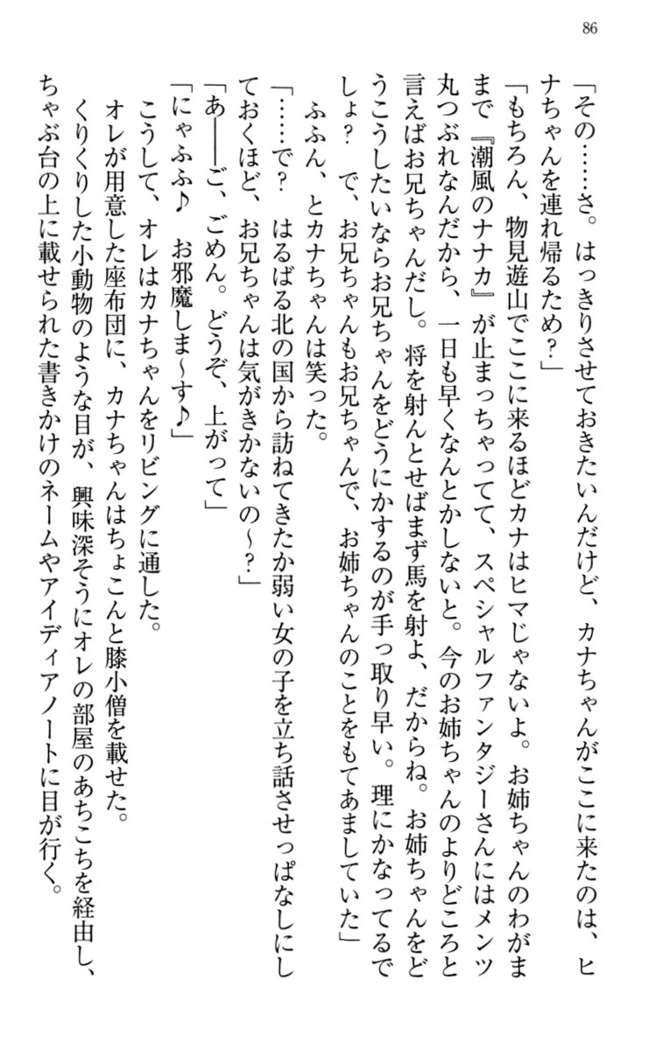 86
「その……さ。はっきりさせておきたいんだけど、カナちゃんがここに来たのは、ヒ
ナちゃんを連れ帰るため?」
「もちろん、物見遊山でここに来るほどカナはヒマじゃないよ。お姉ちゃんのわがま
まで『潮風のナナカ』が止まっちゃってて、スペシャルファンタジーさんにはメンツ
丸つぶれなんだから、一日も早くなんとかしないと。今のお姉ちゃんのよりどころと
言えばお兄ちゃんだし。将を射んとせばまず馬を射よ、だからね。お姉ちゃんをど
うこうしたいならお兄ちゃんをどうにかするのが手っ取り早い。理にかなってるで
しょ? で、お兄ちゃんもお兄ちゃんで、お姉ちゃんのことをもてあましていた」
ふふん、とカナちゃんは笑った。
「……で? はるばる北の国から訪ねてきたか弱い女の子を立ち話させっぱなしにし
ておくほど、お兄ちゃんは気がきかないの〜?」
「あ――ご、ごめん。どうぞ、上がって」
「にゃふふ♪ お邪魔しま〜す♪」
こうして、オレはカナちゃんをリビングに通した。
オレが用意した座布団に、カナちゃんはちょこんと膝小僧を載せた。
くりくりした小動物のような目が、興味深そうにオレの部屋のあちこちを経由し、
ちゃぶ台の上に載せられた書きかけのネームやアイディアノートに目が行く。